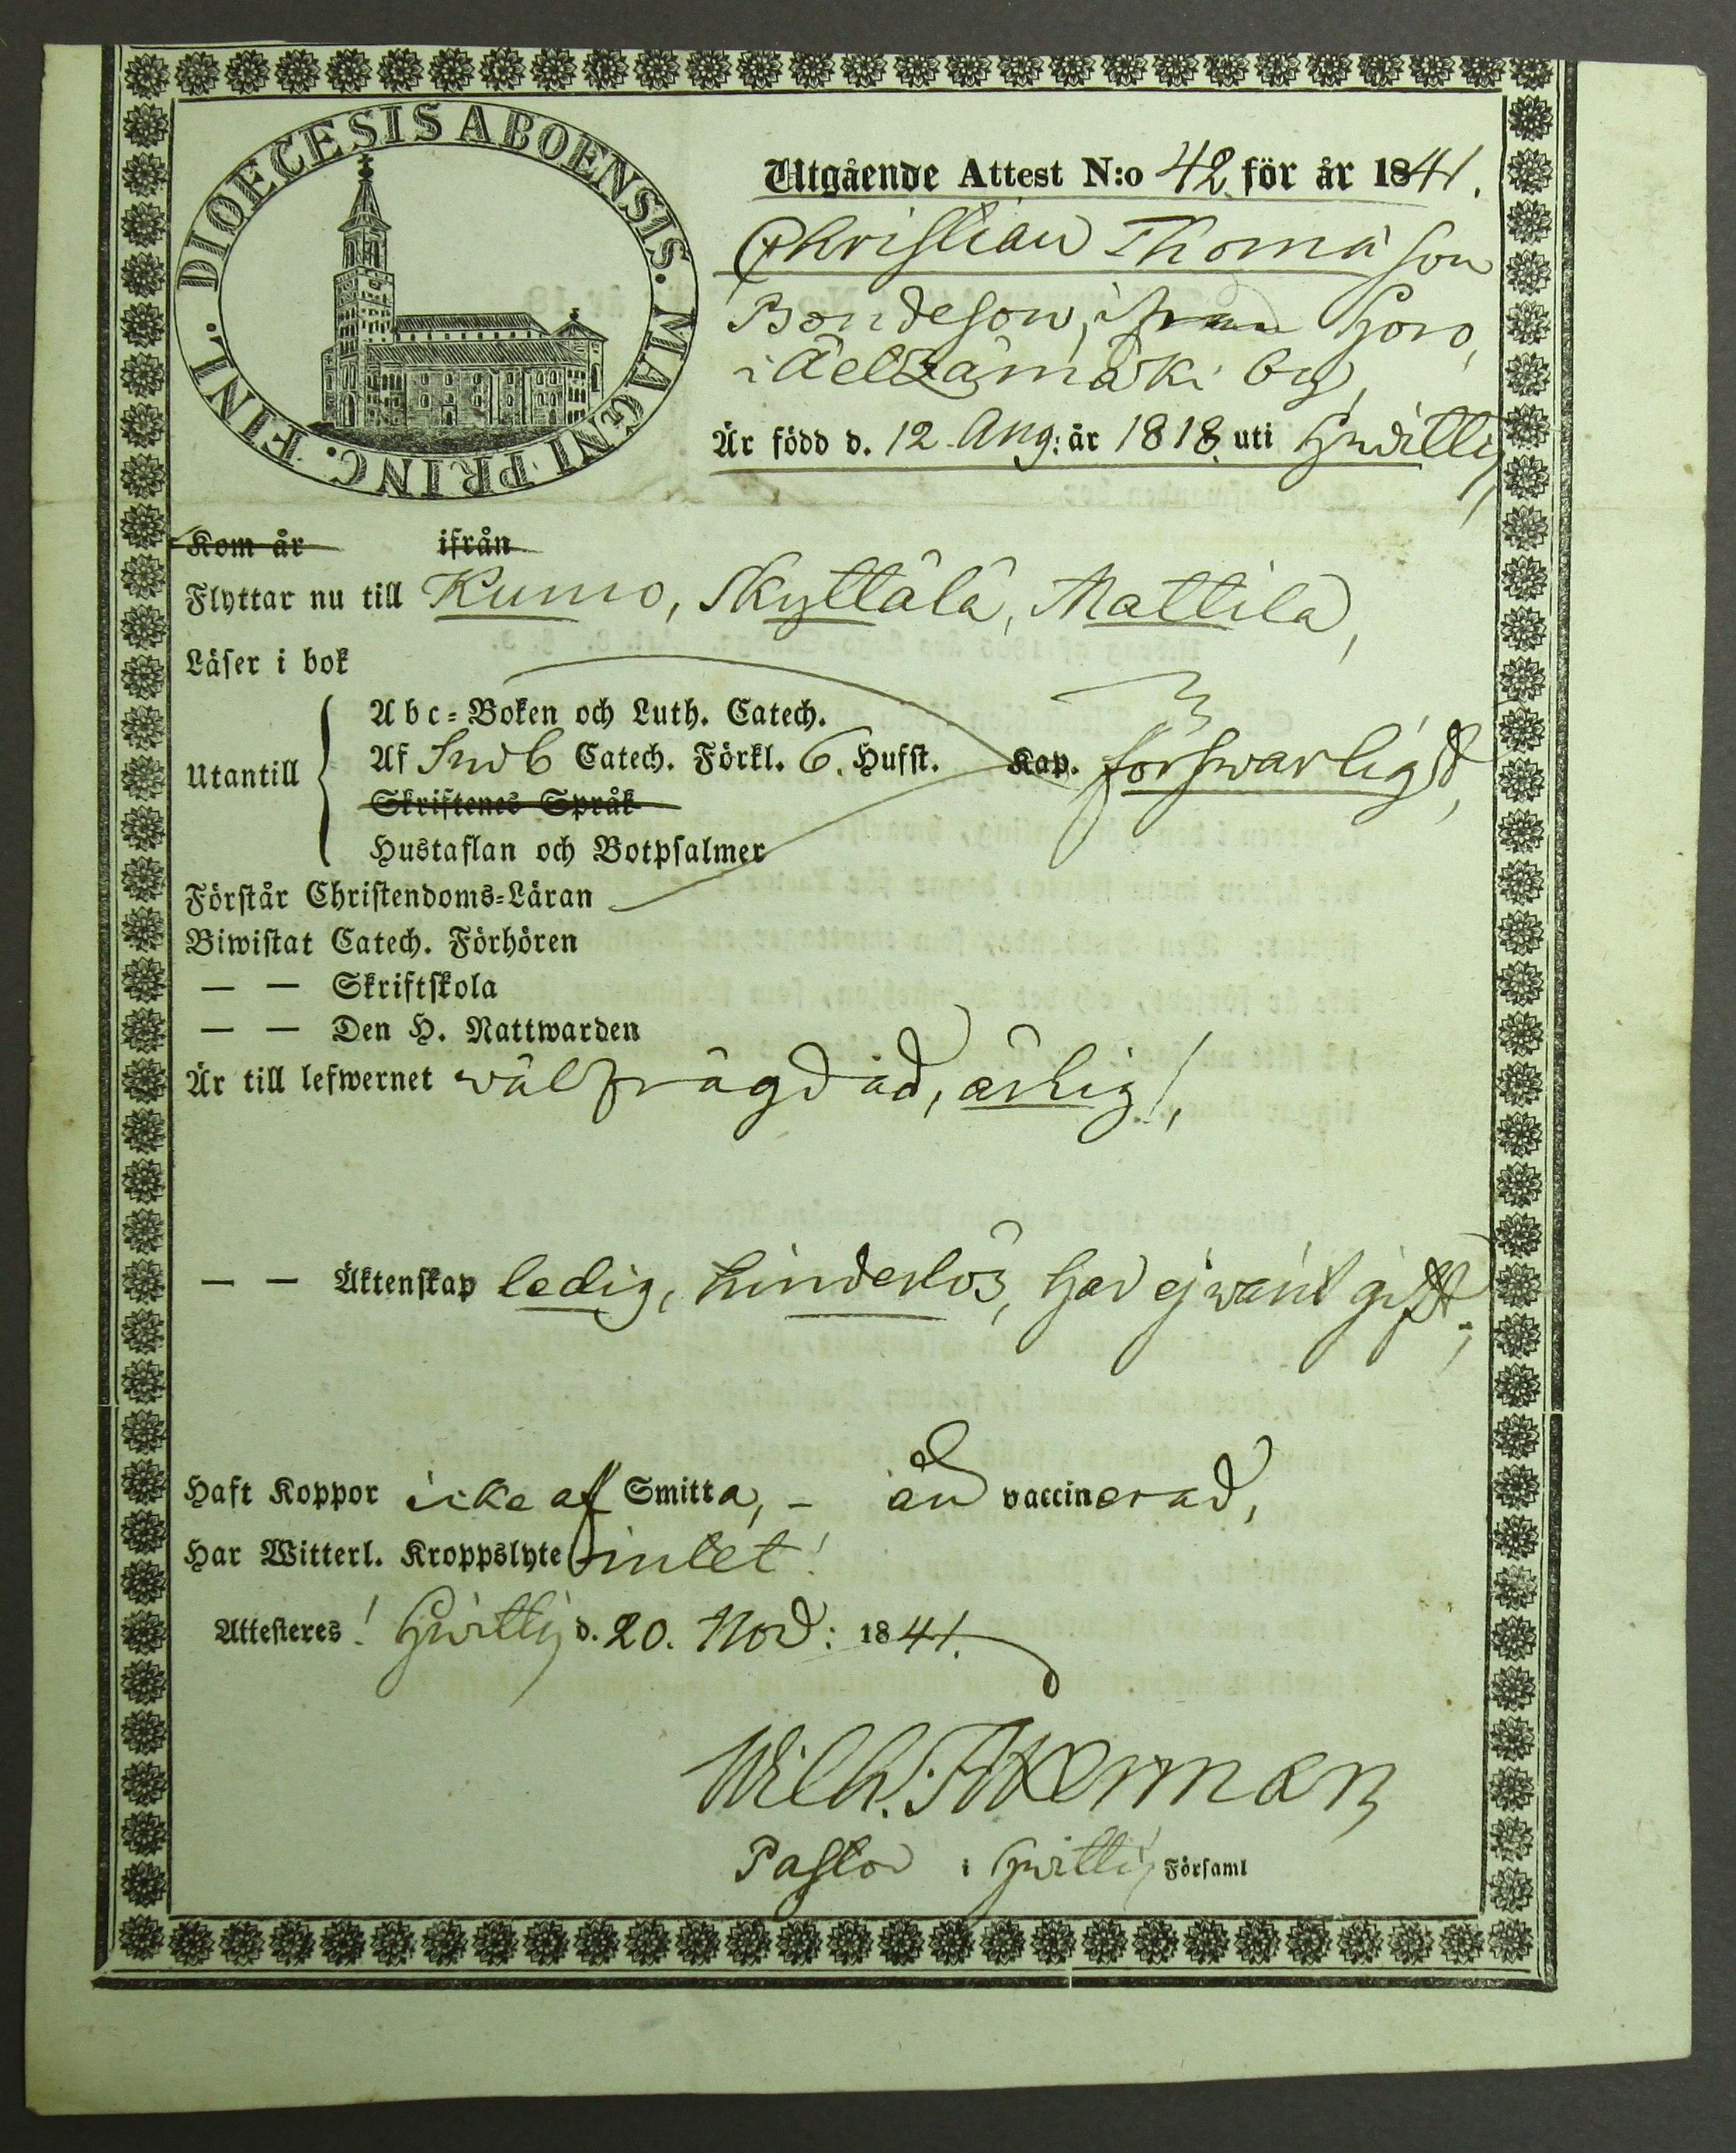 DIOECESIS ABOENSIS. MAGNI PRINC. FINL.
Utgående Attest N:o 42 för år 1841.
Christian Thomason
Bondeson, ifrån
i by,
Är född d. 12 Aug: år 1818 uti Hwittis,
Kom år ifrån
Flyttar nu till Kumo, Skyttälä, Mattila,
Läser i bok
Utantill
Abc-Boken och Luth. Catech.
Af Svebl. Catech. Förkl. 6. Hufst. Kap. försvarligt,
Skriftenes Språk
Hustaflan och Botpsalmer
Förstår Christendoms-Läran
Biwistat Catech. Förhören
— — Skriftskola
— — Den H. Nattwarden
Är till lefwernet välfrägdad, ärlig!,
— — Äktenskap ledig, hinderlös, har ej varit gift;
Haft Koppor icke af Smitta, - än vaccinerad,
Har Witterl. Kroppslyte intet!
Attesteres! Hwittis d. 20. Nov: 1841.
Wilh. Åkerman
Pastor i Hwittis Församl